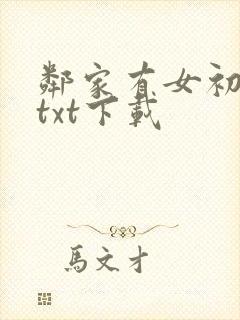 鄰家有女初
txt下載
馬文才